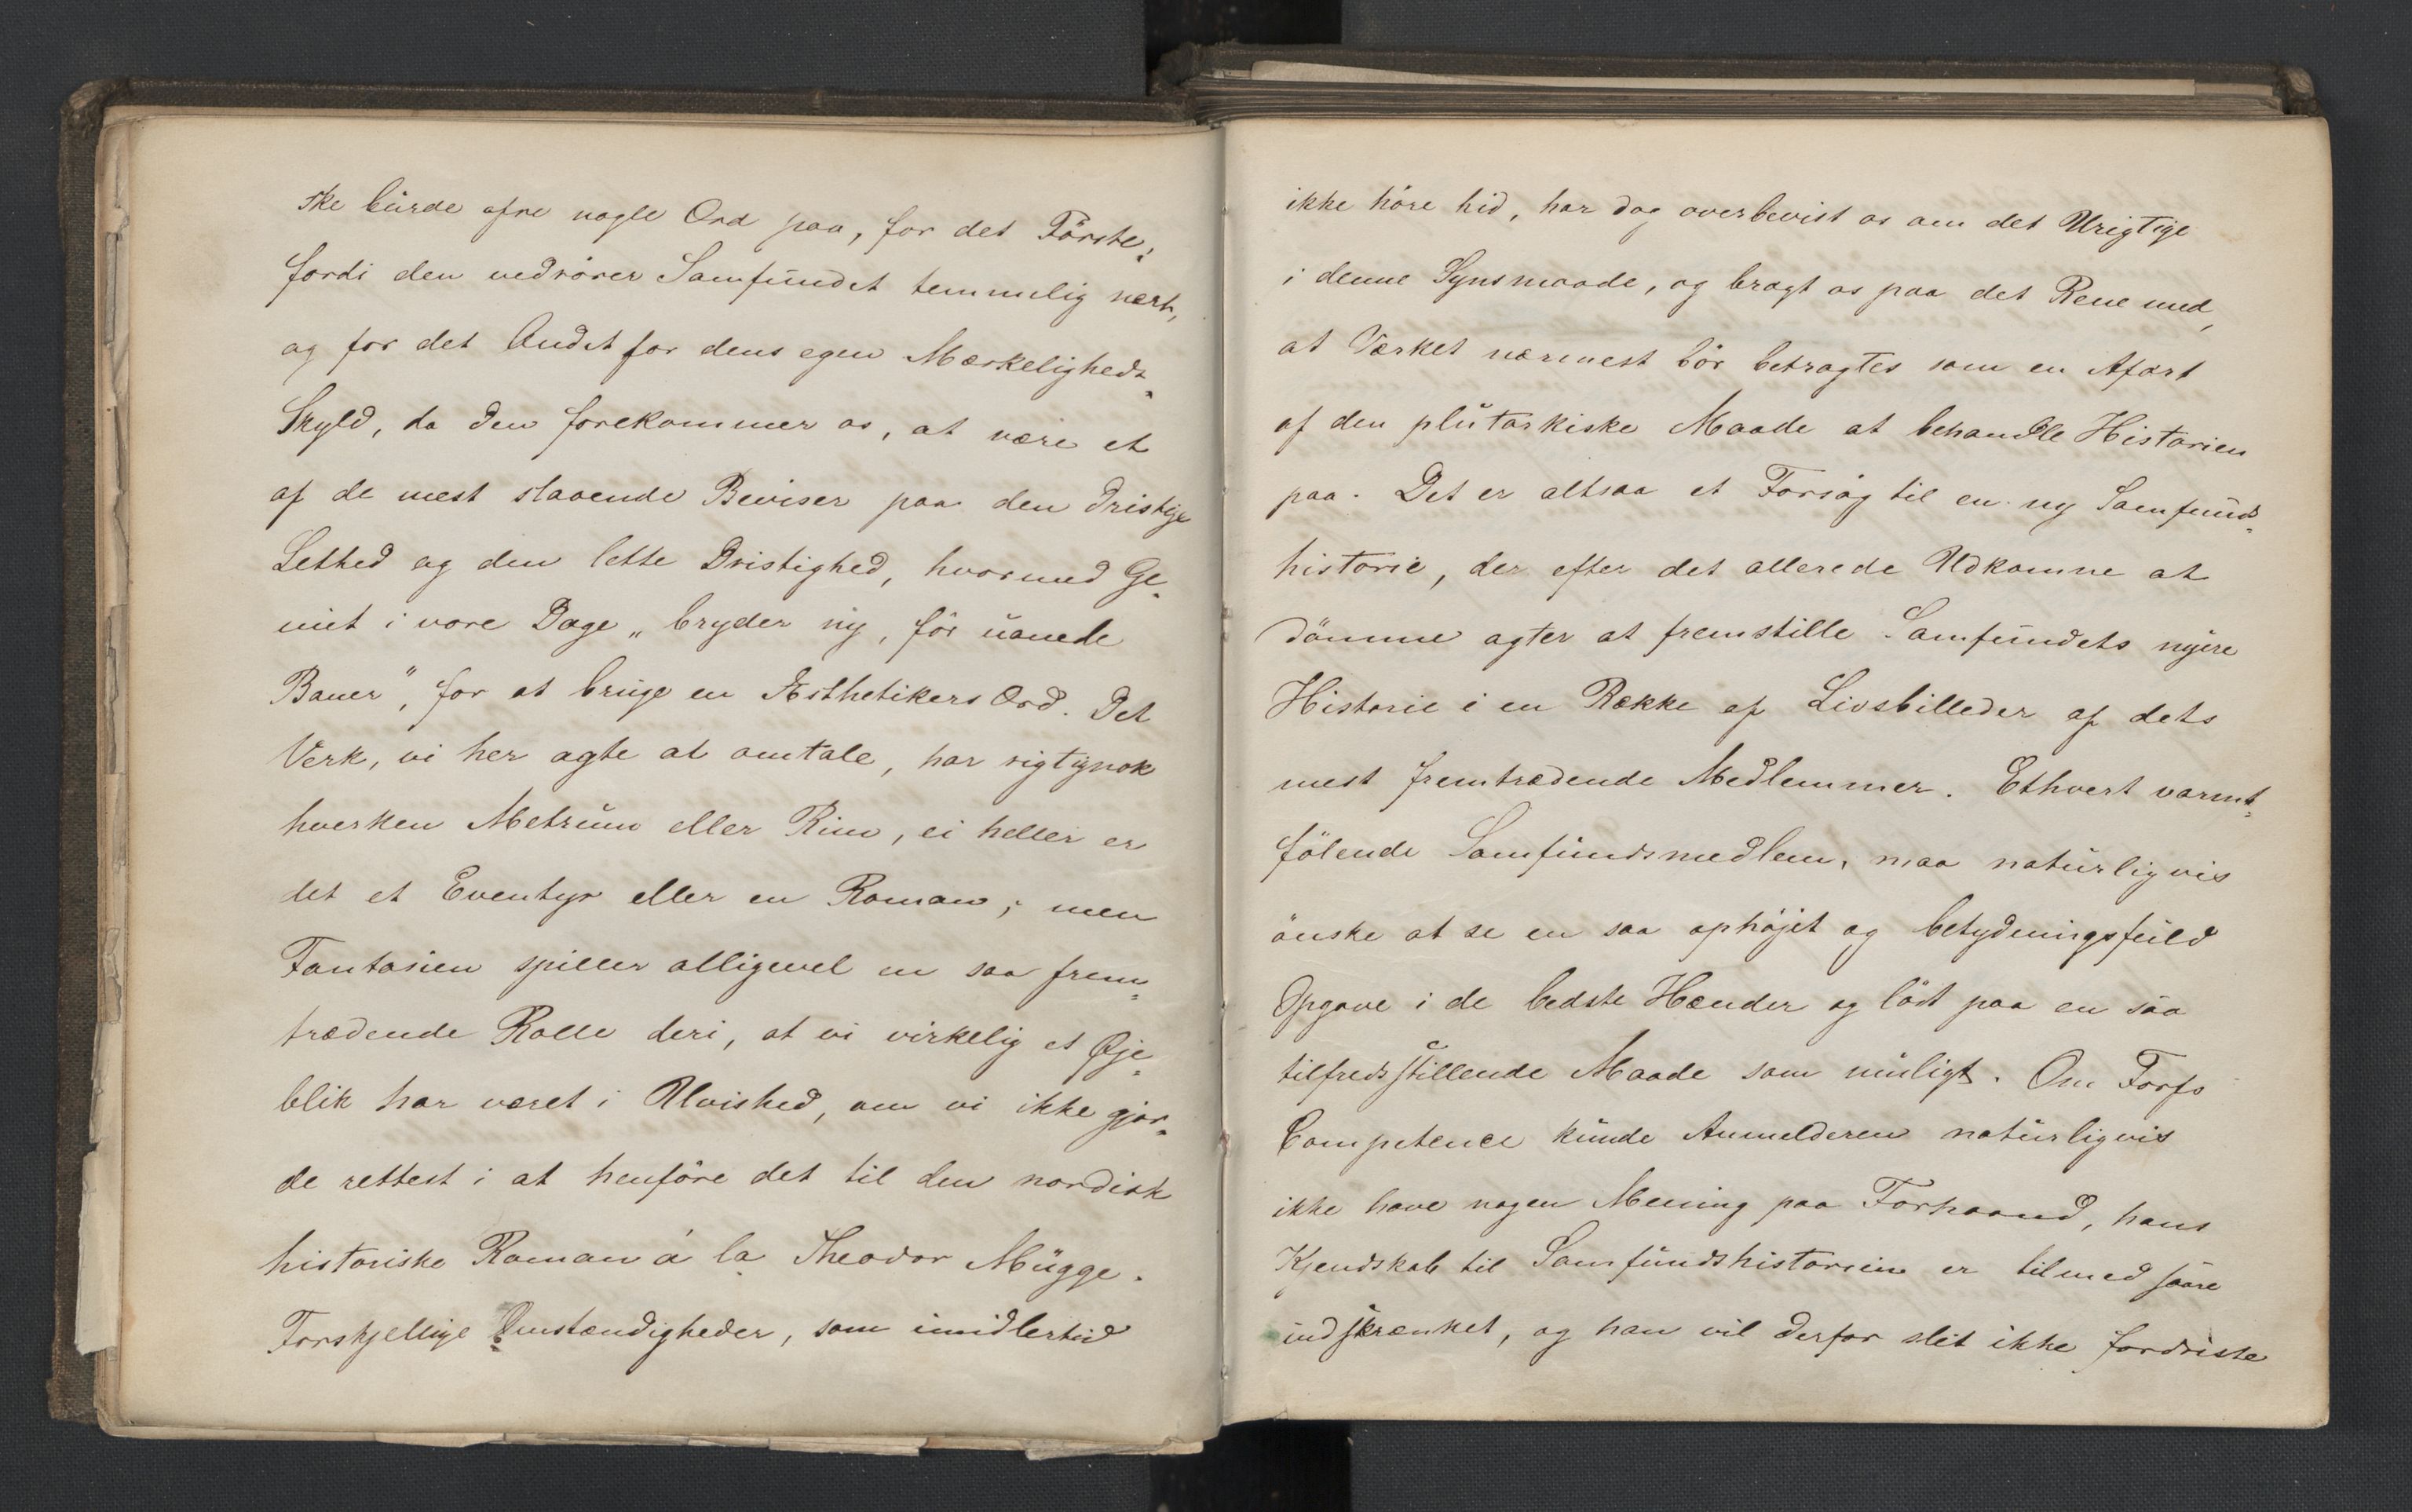 ske burde ofre nogle Ord paa, for det Förste,
fordi den vedrörer Samfundet temmelig nært,
og for det Andet for dens egen Mærkeligheds-
Skyld, da den forekommer os, at være et
af de mest slaaende Beviser paa den dristige
Lethed og den lette Dristighed, hvormed Ge-
niet i vore Dage „bryder ny, för uanede
Baner", for at bruge en Æsthetikers Ord. Det
Verk, vi her agte at omtale, har rigtignok
hverken Metrum eller Rim, ei heller er
det et Eventyr eller en Roman; men
Fantasien spiller alligevel en saa frem-
trædende Rolle deri, at vi virkelig et Øje-
blik har været i Uvished, om vi ikke gjor-
de rettest i at henföre det til den nordisk
historiske Roman á la Theodor Mügge.
Forskjellige Omstændigheder, som imidlertid
ikke höre hid, har dog overbevist os om det Urigtige
i denne Synsmaade, og bragt os paa det Rene med,
at Værket nærmest bör betragtes som en Afart
af den plutarkiske Maade at behandle Historien
paa. Det er altsaa et Forsög til en ny Samfunds-
historie, der efter det allerede Udkomne at
dömme agter at fremstille Samfundets nyere
Historie i en Række af Livsbilleder af dets
mest fremtrædende Medlemmer. Ethvert varmt-
fölende Samfundsmedlem, maa naturligvis
önske at se en saa ophöjet og betydningsfuld
Opgave i de bedste Hænder og löst paa en saa
tilfredsstillende Maade som muligt. Om Forfs
Competence kunde Anmelderen naturligvis
ikke have nogen Mening paa Forhaand, hans
Kjendskab til Samfundshistorien er tilmed saare
indskrænket, og han vil derfor slet ikke fordriste